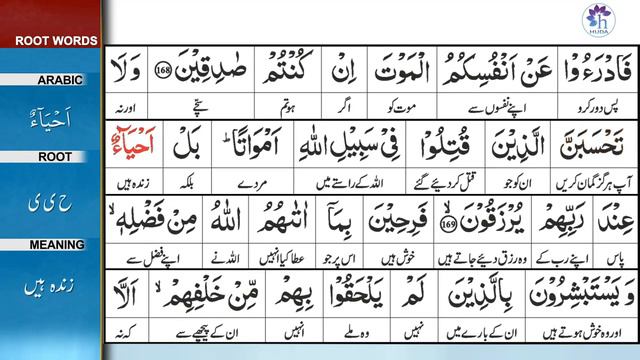 ROOT WORDS
ARABIC
اَحْيَآءٌ
ROOT
ح ی ی
MEANING
زندہ ہیں
HUDA
فَادْرَءُوْا عَنْ اَنْفُسِكُمُ الْمَوْتَ اِنْ كُنْتُمْ صٰدِقِيْنَ 168 وَلَا
پس دور کرو اپنے نفسوں سے موت کو اگر ہو تم سچے اور نہ
تَحْسَبَنَّ الَّذِيْنَ قُتِلُوْا فِيْ سَبِيْلِ اللّٰهِ اَمْوَاتًا ؕ بَلْ اَحْيَآءٌ
آپ ہرگز گمان کریں ان کو جو قتل کر دیئے گئے اللہ کے راستے میں مردے بلکہ زندہ ہیں
عِنْدَ رَبِّهِمْ يُرْزَقُوْنَ ۙ 169 فَرِحِيْنَ بِمَآ اٰتٰىهُمُ اللّٰهُ مِنْ فَضْلِهٖ ۙ
پاس اپنے رب کے وہ رزق دیئے جاتے ہیں خوش ہیں اس پر جو عطا کیا انہیں اللہ نے اپنے فضل سے
وَيَسْتَبْشِرُوْنَ بِالَّذِيْنَ لَمْ يَلْحَقُوْا بِهِمْ مِّنْ خَلْفِهِمْ ۙ اَلَّا
اور وہ خوش ہوتے ہیں ان کے بارے میں نہیں وہ ملے انہیں ان کے پیچھے سے کہ نہ